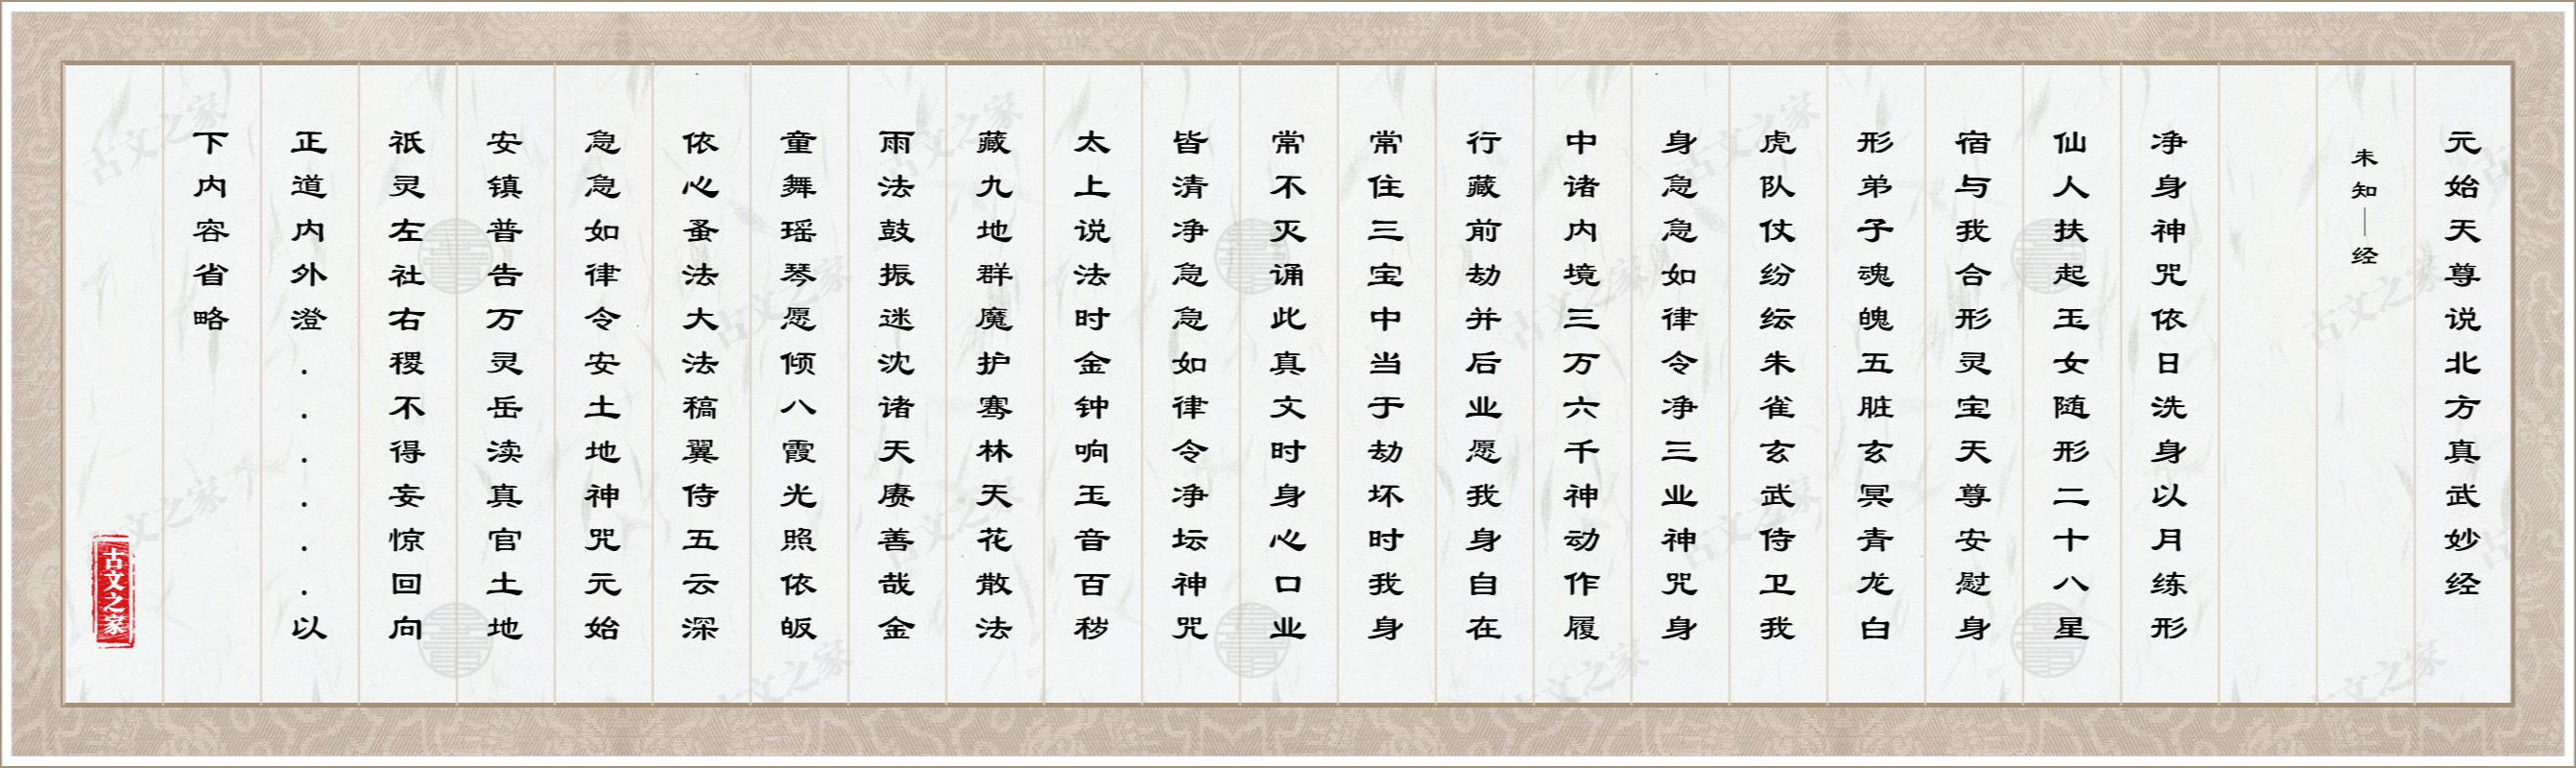 元始天尊说北方真武妙经
未知｜经
净身神咒依日洗身以月练形
仙人扶起玉女随形二十八星
宿与我合形灵宝天尊安慰身
形弟子魂魄五脏玄冥青龙白
虎队仗纷纭朱雀玄武侍卫我
身急急如律令净三业神咒身
中诸内境三万六千神动作履
行藏前劫并后业愿我身自在
常住三宝中当于劫坏时我身
常不灭诵此真文时身心口业
皆清净急急如律令净坛神咒
太上说法时金钟响玉音百秽
藏九地群魔护骞林天花散法
雨法鼓振迷沈诸天赓善哉金
童舞瑶琴愿倾八霞光照依皈
依心蚤法大法稿翼侍五云深
急急如律令安土地神咒元始
安镇普告万灵岳渎真官土地
祇灵左社右稷不得妄惊回向
正道内外澄......以
下内容省略
古文之家